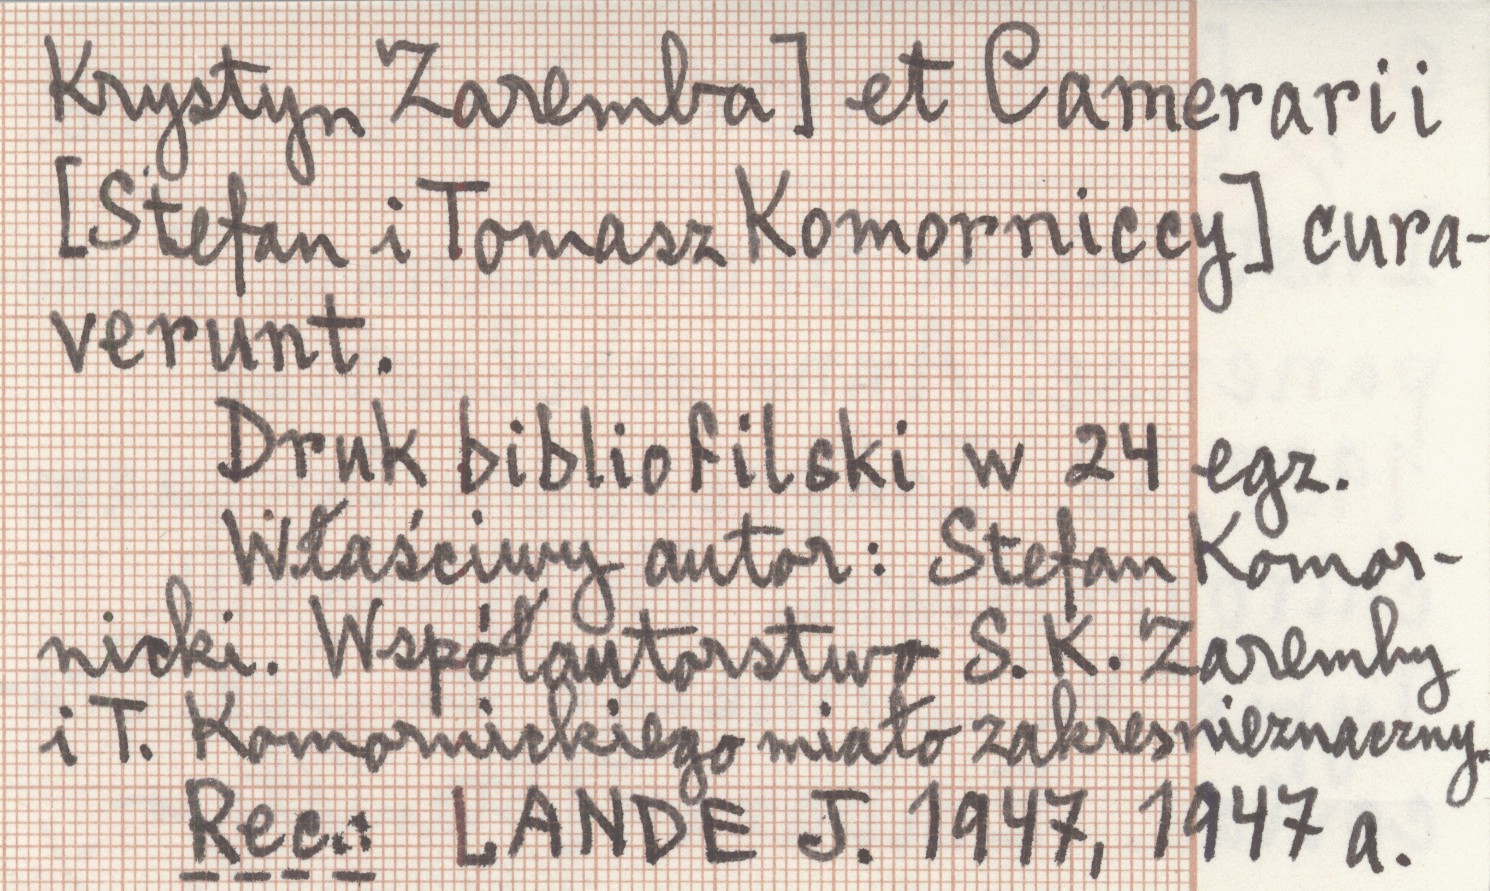 Krystyn Zaremba] et Camerarii
[Stefan i Tomasz Komorniccy] cura-
verunt.
Druk bibliofilski w 24 egz.
Właściwy autor: Stefan Komor-
nicki. Współautorstwo S. K. Zaremby
i T. Komornickiego miało zakres nieznaczny.
Rec.: LANDE J. 1947, 1947 a.